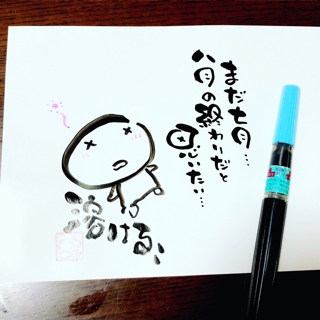 まだ七月…
八月の終わりだと
思いたい…
溶ける、